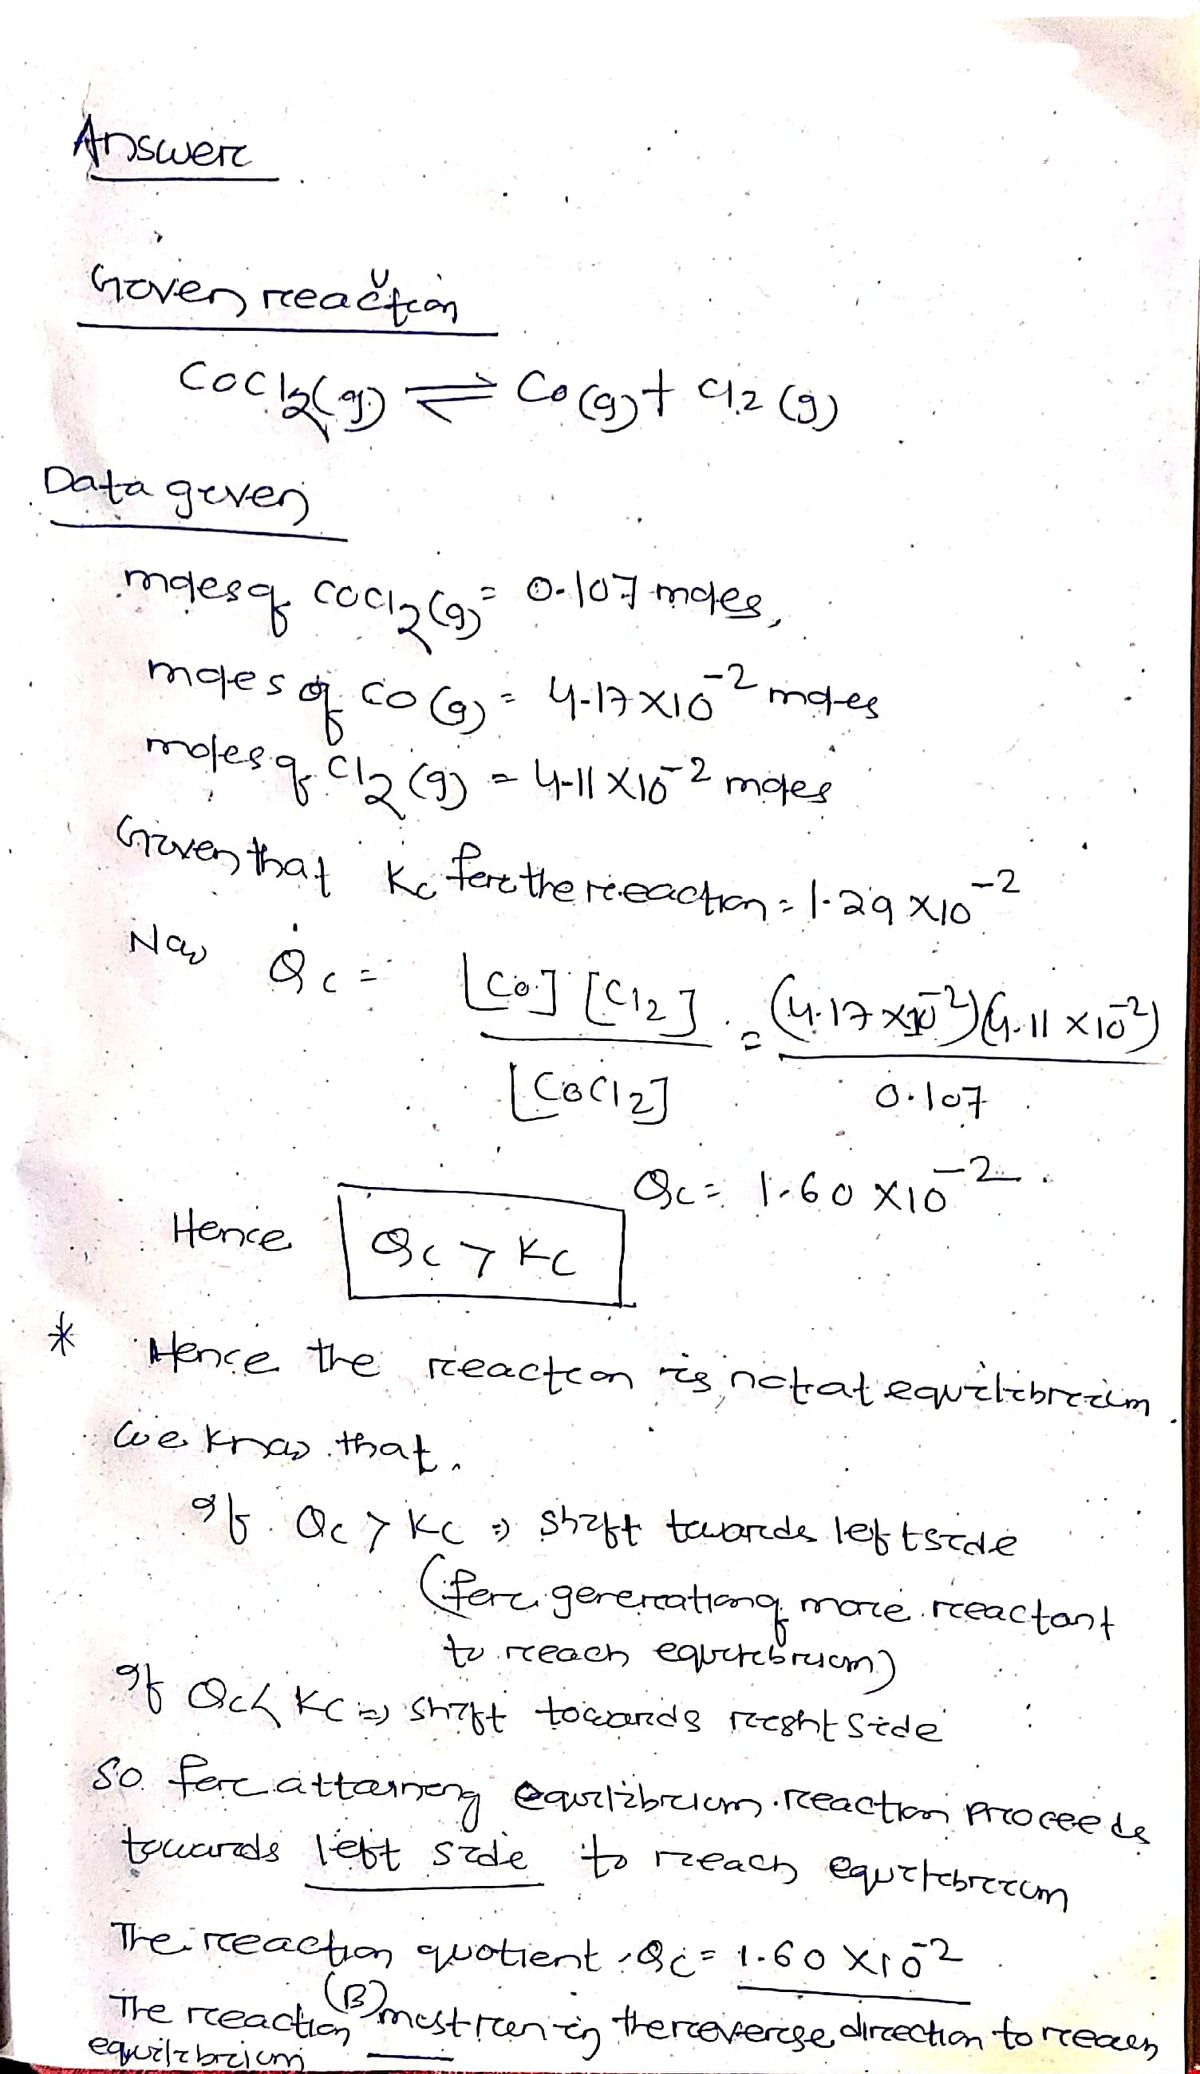 Answer
Given reaction
COCl2(g) ⇌ CO(g) + Cl2(g)
Data given
moles of COCl2(g) = 0.107 moles,
moles of CO(g) = 4.17 × 10^-2 moles
moles of Cl2(g) = 4.11 × 10^-2 moles
Given that Kc for the reaction = 1.29 × 10^-2
Now Qc = [CO] [Cl2] / [COCl2] = (4.17 × 10^-2)(4.11 × 10^-2) / 0.107
Qc = 1.60 × 10^-2
Hence Qc > Kc
* Hence the reaction is not at equilibrium.
We know that.
If Qc > Kc ⇒ shift towards left side
(for generation of more reactant
to reach equilibrium)
If Qc < Kc ⇒ shift towards right side
So for attaining equilibrium reaction proceeds
towards left side to reach equilibrium
The reaction quotient, Qc = 1.60 × 10^-2
The reaction (B) must run in the reverse direction to reach
equilibrium